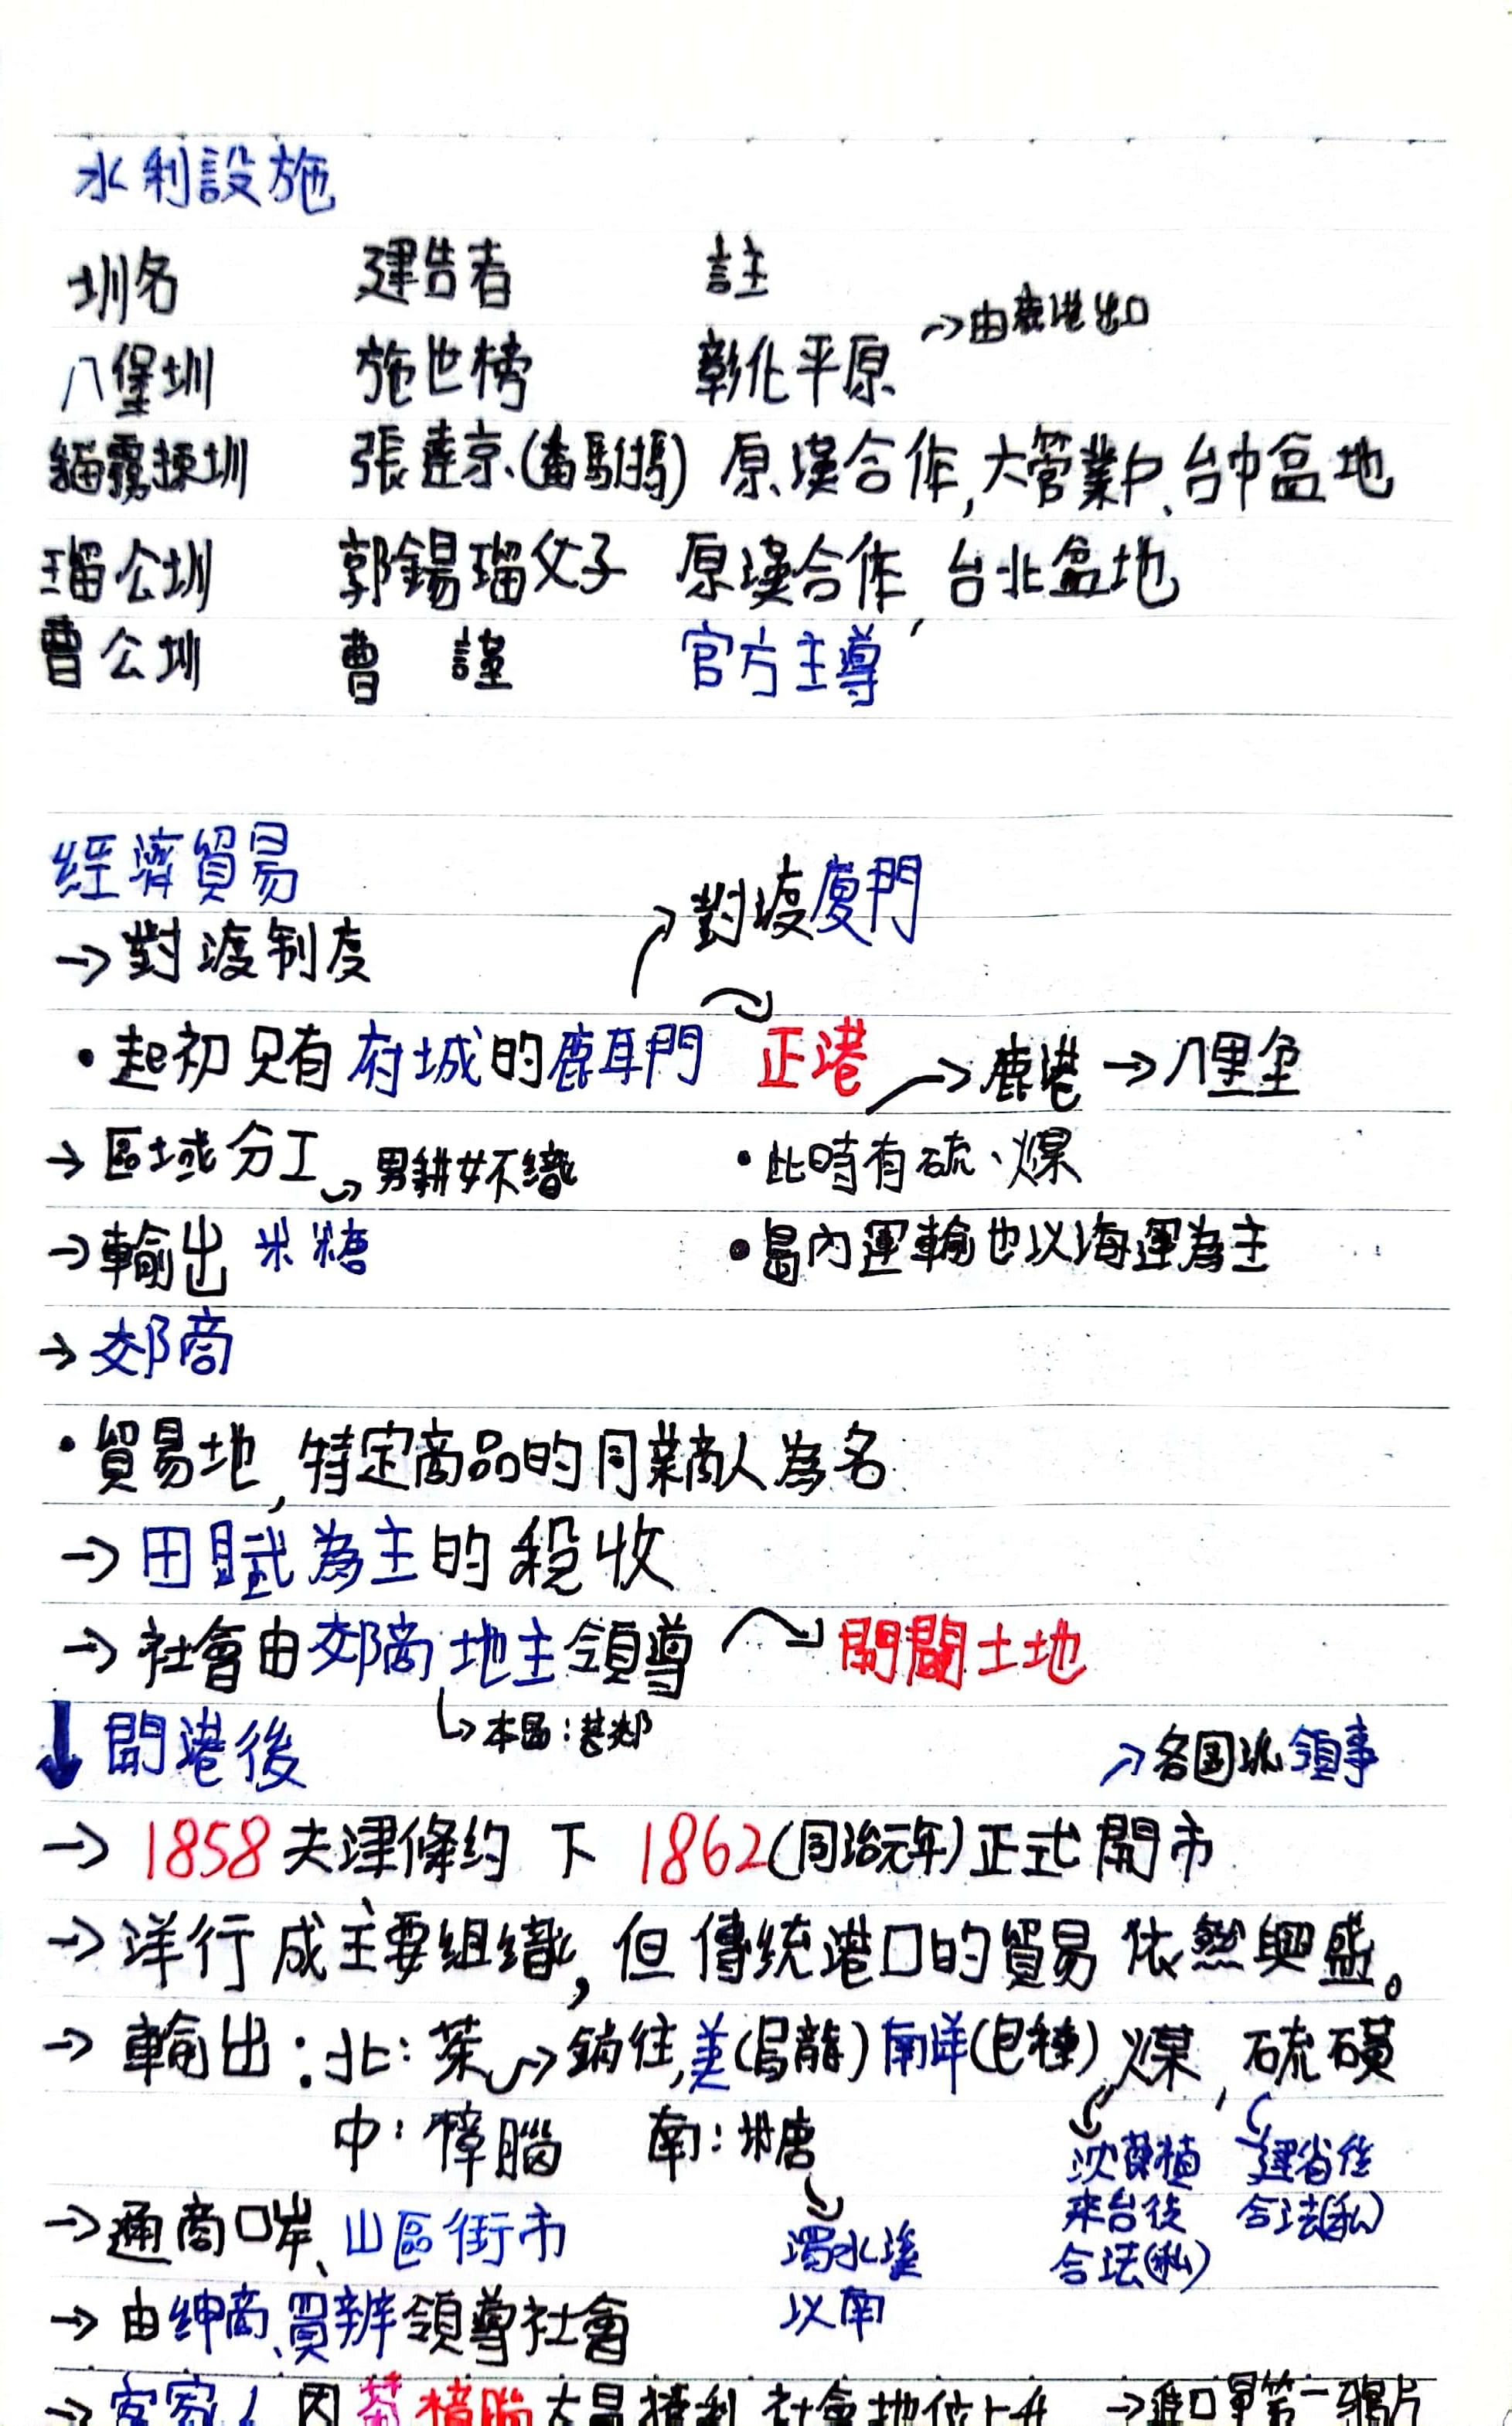 水利設施
圳名 建造者 註
→由鹿港出口
八堡圳 施世榜 彰化平原
貓霧捒圳 張達京(番駙馬) 原、漢合作,大管業戶、台中盆地
瑠公圳 郭錫瑠父子 原漢合作,台北盆地
曹公圳 曹謹 官方主導
經濟貿易
→對渡廈門
→對渡制度
•起初只有府城的鹿耳門 正港 →鹿港→八里坌
→區域分工 →男耕女不織 •此時有硫、煤
→輸出 米糖 •島內運輸也以海運為主
→郊商
•貿易地,特定商品的同業商人為名
→田賦為主的稅收
→社會由郊商地主領導 →開闢土地
↓開港後 →本島:港郊 →各国派領事
→1858天津條約 下 1862(同治元年)正式開市
→洋行成主要組織,但傳統港口的貿易依然興盛。
→輸出:北:茶→銷往,美(烏龍)南洋(包種),煤,硫磺
中:樟腦 南:糖 沈葆楨 建省後
→通商口岸、山區街市 濁水溪 來台後 合法(私)
合法(私)
→由紳商、買辦領導社會 以南
→客家人因茶樟腦大量獲利 社會地位上升 →進口單第一鴉片